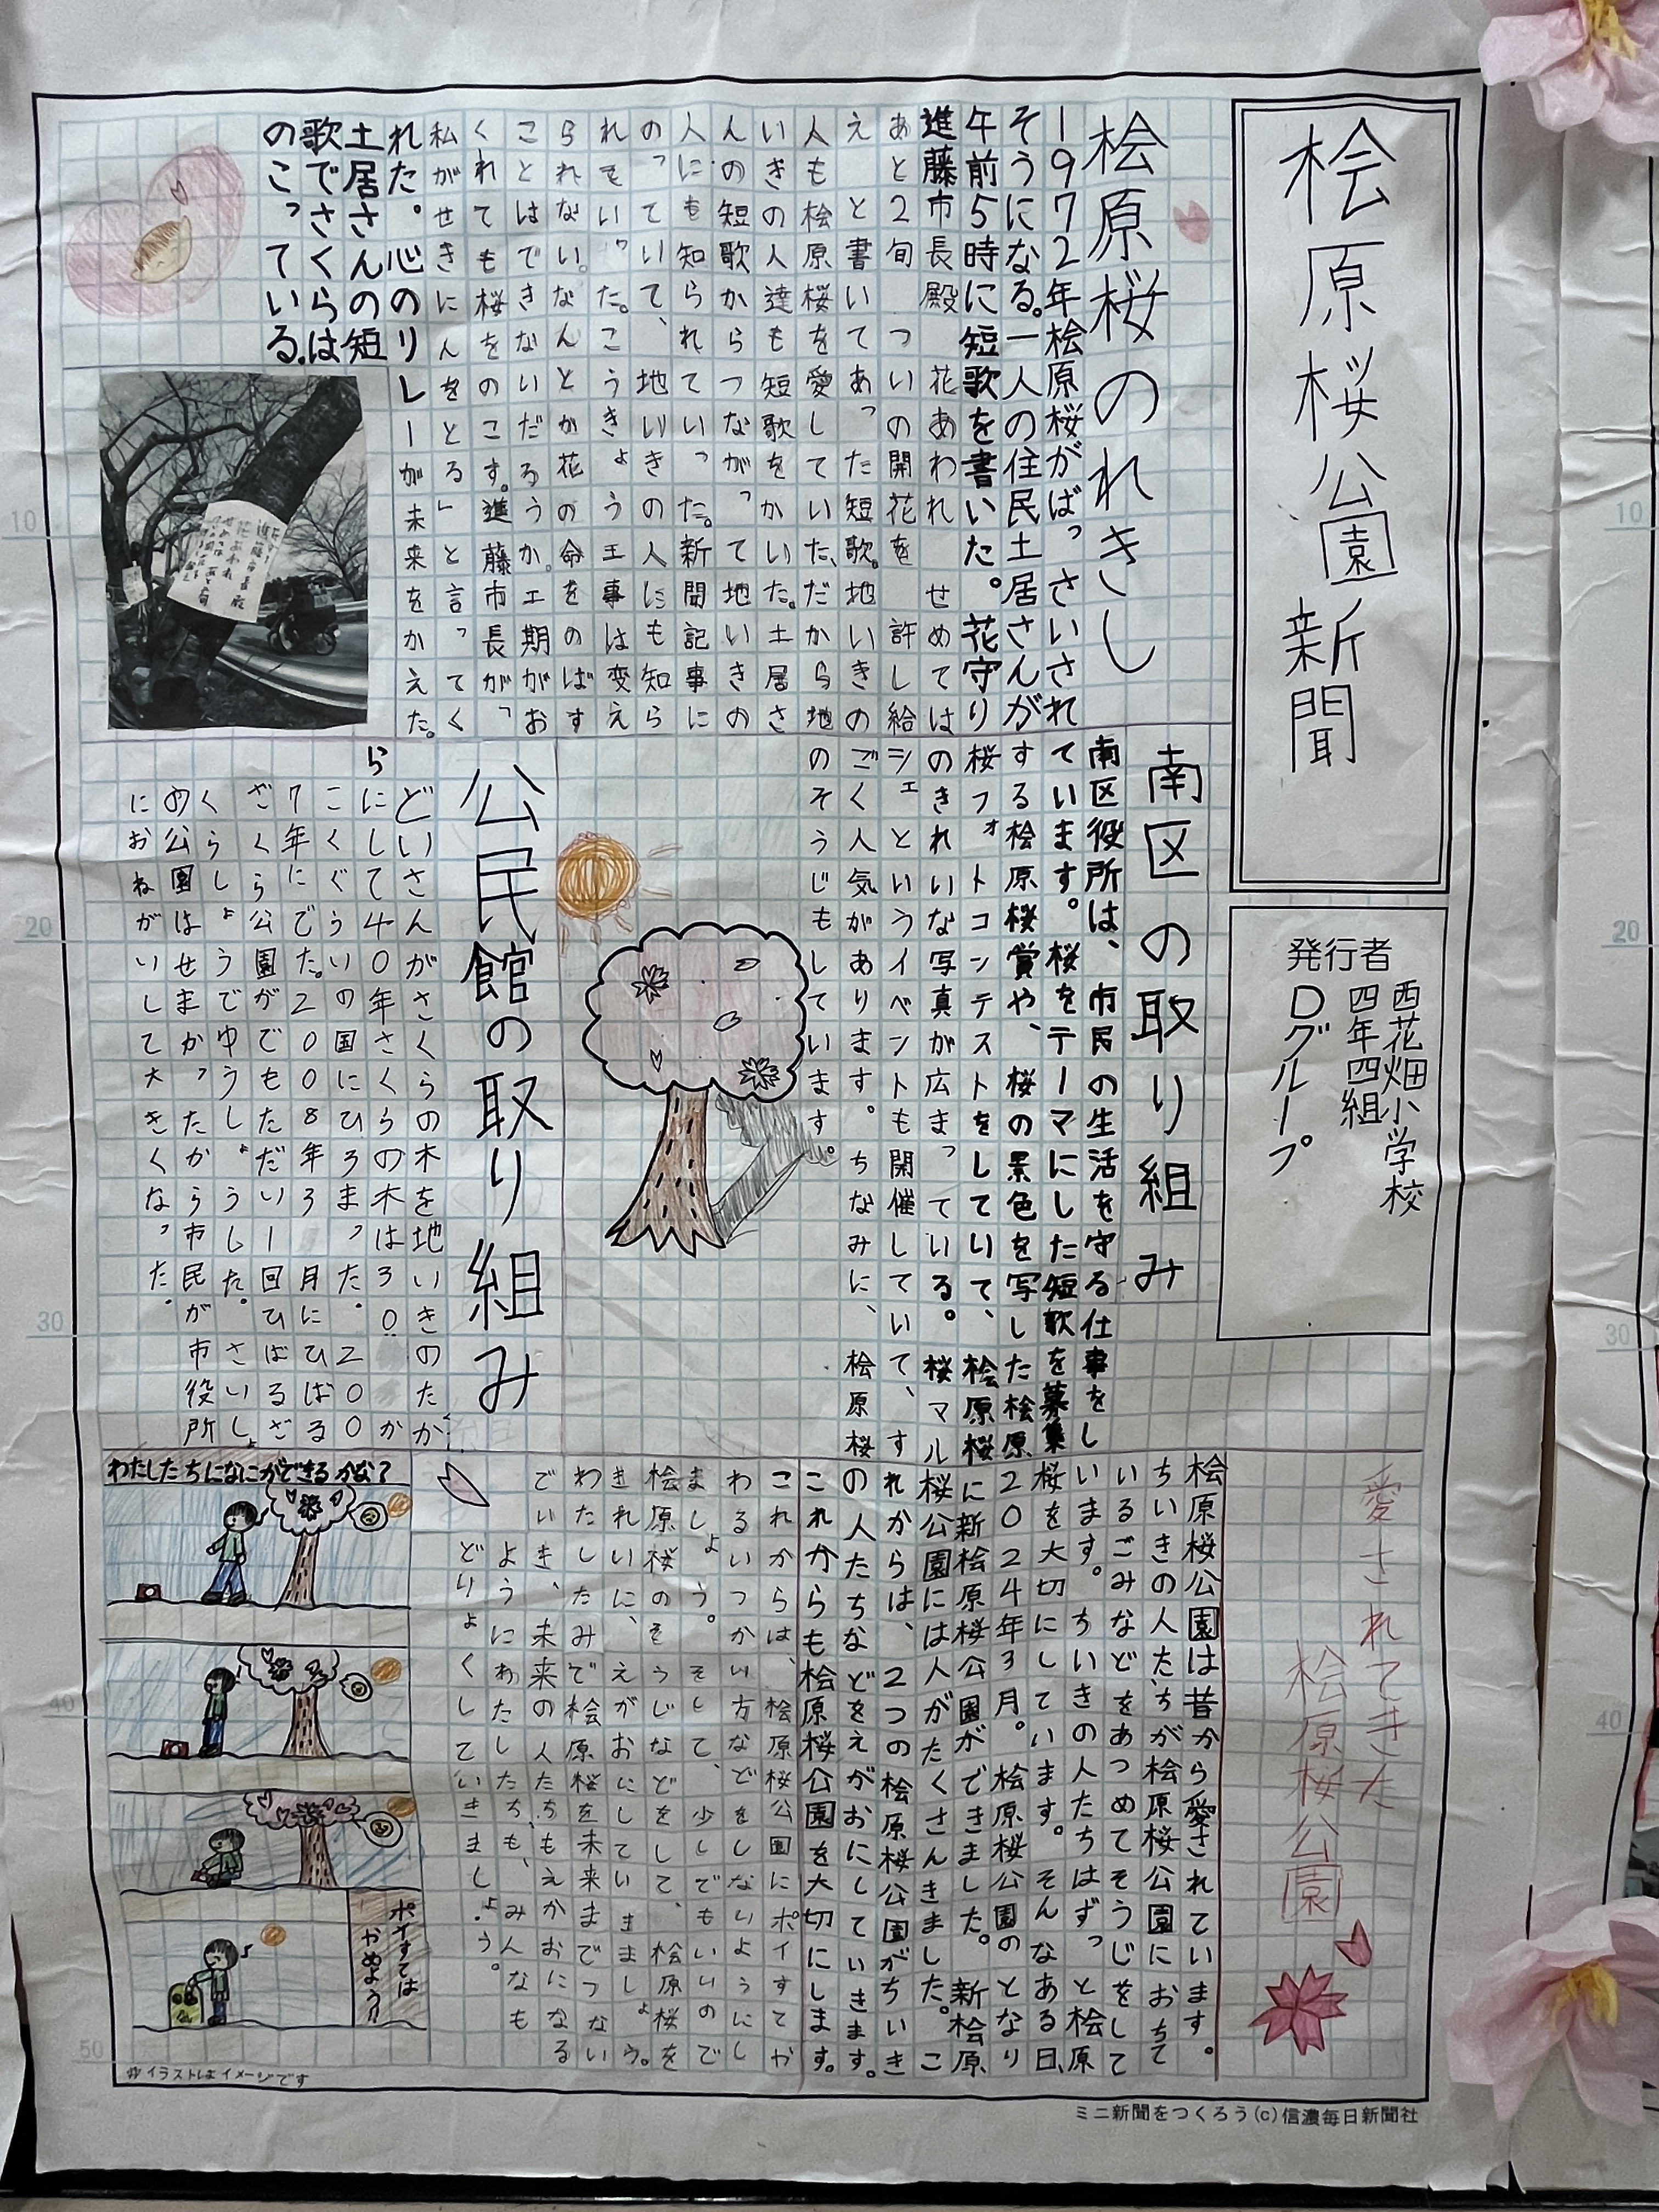 桧原桜公園新聞
発行者
西花畑小学校
四年四組
Dグループ
桧原桜のれきし
1972年桧原桜がばっさいされ
そうになる。一人の住民土居さんが
午前5時に短歌を書いた。花守り
進藤市長殿 花あわれ せめては
あと2旬 ついの開花を 許し給
え と書いてあった短歌。地いきの
人も桧原桜を愛していた、だから地
いきの人達も短歌をかいた。土居さ
んの短歌からつながって地いきの
人にも知られていった。新聞記事に
のっていて、地いきの人にも知ら
れてい
られない。なんとか花の命をのばす
ことはできないだろうか。工期がお
くれても桜をのこす。進藤市長が「
私がせきにんをとる」と言ってく
れた。心のリレーが未来をかえた。
土居さんの短
歌でさくらは
のこっている。
南区の取り組み
南区役所は、市民の生活を守る仕事をし
ています。桜をテーマにした短歌を募集
する桧原桜賞や、桜の景色を写した桧原
桜フォトコンテストをしていて、桧原桜
のきれいな写真が広まっている。桜マル
シェというイベントも開催していて、す
ごく人気があります。ちなみに、桧原桜
のそうじもしています。
公民館の取り組み
どいさんがさくらの木を地いきのたか
らにして40年さくらの木は30か
こくぐらいの国にひろまった。200
7年にでた。2008年3月にひばる
ざくら公園がでもただい1回ひばるざ
くらしょうでゆうしょうした。さいしょ
の公園はせまかったから市民が市役所
におねがいして大きくなった。
愛されてきた
桧原桜公園
桧原桜公園は昔から愛されています。
ちいきの人たちが桧原桜公園におちて
いるごみなどをあつめてそうじをして
います。ちいきの人たちはずっと桧原
桜を大切にしています。そんなある日、
2024年3月。桧原桜公園のとなり
に新桧原桜公園ができました。新桧原
桜公園には人がたくさんきました。こ
れからは、2つの桧原桜公園がちいき
の人たちなどをえがおにしていきます。
これからも桧原桜公園を大切にします。
これからは、桧原桜公園にポイすてや
わるいつかい方などをしないようにし
ましょう。そして、少しでもいいので
桧原桜のそうじなどをして、桧原桜を
きれいに、えがおにしていましょう。
わたしたみで桧原桜を未来までつない
でいき、未来の人たちもえがおになる
ようにわたしたちも、みんなも
どりょくしていきましょう。
わたしたちになにができるかな?
ポイすては
やめよう!!
※イラストはイメージです
ミニ新聞をつくろう(c)信濃毎日新聞社
10
20
30
40
50
10
20
30
40